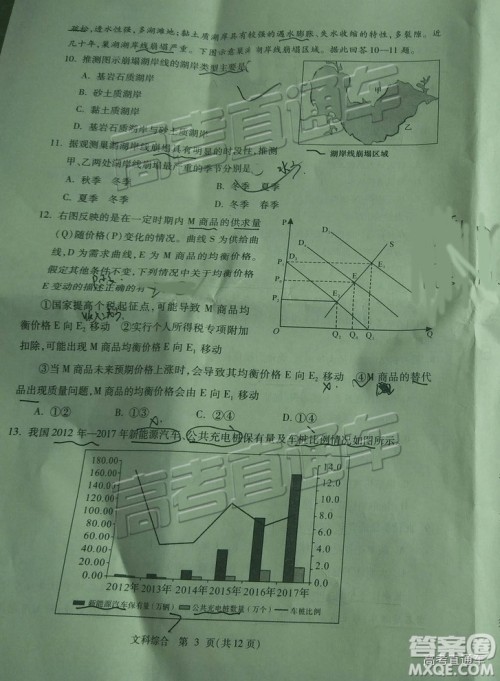 透水性强，多湖滩地；黏土质湖岸具有较强的遇水膨胀、失水收缩的特性，多裂隙。近
几十年，巢湖湖岸线崩塌严重。下图示意巢湖湖岸线崩塌区域。据此回答10—11题。
10. 推测图示崩塌湖岸线的湖岸类型主要是
A. 基岩石质湖岸
B. 砂土质湖岸
C. 黏土质湖岸
D. 基岩石质湖岸与砂土质湖岸
甲
乙
湖岸线崩塌区域
11. 据观测巢湖湖岸线崩塌具有明显的时段性，推测
甲、乙两处湖岸线崩塌最严重的季节分别是
A. 秋季 冬季
B. 冬季 夏季
C. 夏季 冬季
12. 右图反映的是在一定时期内M商品的供求量
（Q）随价格（P）变化的情况。曲线S为供给曲
线，D为需求曲线，E为M商品的均衡价格。
假定其他条件不变，下列情况中关于均衡价格
E变动的描述正确的为
P
S
E
Q
①国家提高个税起征点，可能导致M商品均
衡价格E向E₂移动 ②实行个人所得税专项附加
扣除，可能出现M商品均衡价格E向E₁移动
③当M商品未来预期价格上涨时，会导致其均衡价格E向E₂移动 ④M商品的替代
品出现质量问题，M商品的均衡价格会由E向E₁移动
A. ①② B. ①③ C. ②④ D. ①④
13. 我国2012年—2017年新能源汽车、公共充电桩保有量及车桩比例情况如图所示
180.00
160.00
140.00
120.00
100.00
80.00
60.00
40.00
20.00
0.00
16.0
14.0
12.0
10.0
8.0
6.0
4.0
2.0
0.0
2012年 2013年 2014年 2015年 2016年 2017年
新能源汽车保有量（万辆） 公共充电桩数量（万个） 车桩比例
文科综合 第 3 页（共12页）
高考直通车
高考直通车
答案圈
高考直通车
MXQE.COM